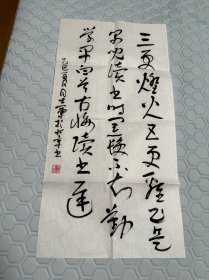 三更燈火五更雞正是
男兒讀書時黑髮不知勤
學早白首方悔讀書遲